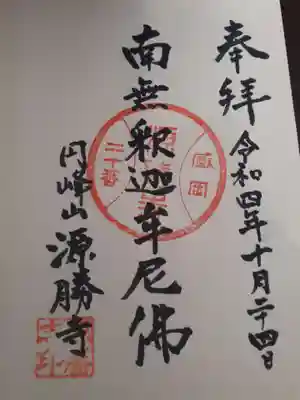 奉拝
令和四年十月二十四日
南無釈迦牟尼佛
円峰山源勝寺
盛岡
三十番